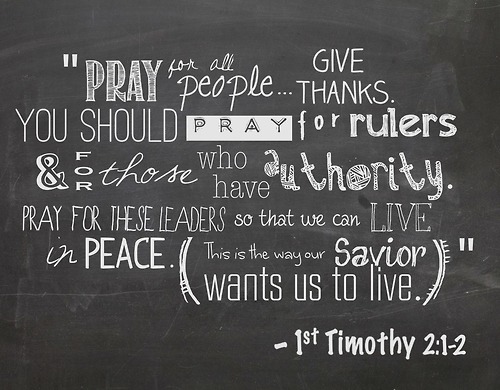 "PRAY for all people... GIVE THANKS.
YOU SHOULD PRAY for rulers
& FOR those who have authority.
PRAY FOR THESE LEADERS so that we can LIVE
in PEACE. (This is the way our Savior
wants us to live.)"
- 1st Timothy 2:1-2